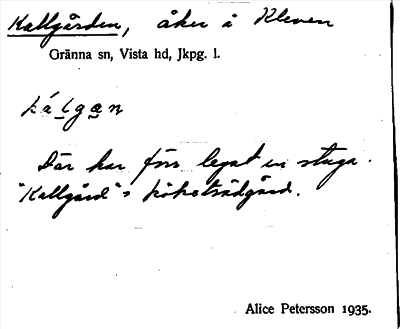 Kallgården, åker å Kleven
Gränna sn, Vista hd, Jkpg. l.
Där har förr legat en stuga.
"Kallgård"s köksträdgård.
Alice Petersson 1935.